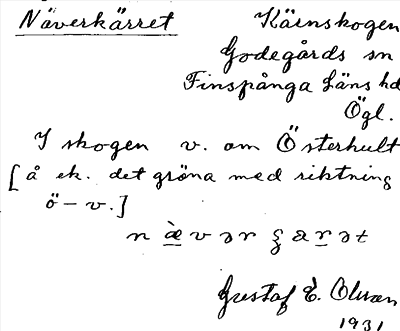 Näverkärret Käinskogen
Godegårds sn
Finspånga läns hd
Ögl.
I skogen v. om Österhult
[å ek. det gröna med riktning
ö – v.]
Gustaf E. Olsson
1931